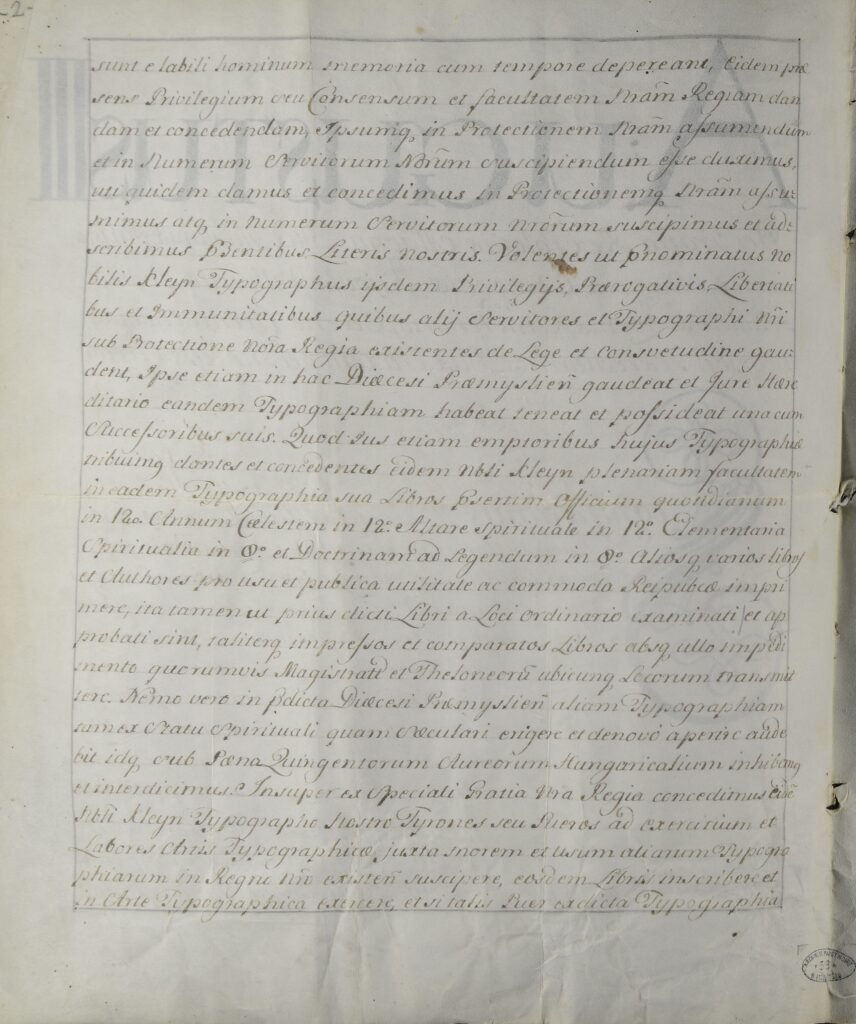 -2-
sunt e labili hominum memoria cum tempore depereant, Eidem præ
sens Privilegium seu Consensum et facultatem Nrãm Regiam dan
dam et concedendam, Ipsumq in Protectionem Nrãm assumendum
et in Numerum Servitorum Nõrum suscipiendum esse duximus,
uti quidem damus et concedimus in Protectionemq Nrãm assu-
mimus atq in Numerum Servitorum Nrõrum suscipimus et ad-
scribimus Pñentibus Literis nostris. Volentes ut Pñominatus No
bilis Kleyn Typographus ijsdem Privilegijs, Prærogativis, Libertati
bus et Immunitatibus quibus alij Servitores et Typographi Nri
sub Protectione Nõra Regia existentes de Lege et consvetudine gau-
dent, Ipse etiam in hac Diæcesi Præmysliẽn gaudeat et Jure Hære
ditario eandem Typographiam habeat teneat et possideat una cum
Successoribus suis. Quod Jus etiam emptoribus hujus Typographiæ
tribuimq dantes et concedentes eidem Nbli Kleyn plenariam facultatem
in eadem Typographia sua Libros Psertim Officium quotidianum
in 12o. Annum Cœlestem in 12o. Altare Spirituale in 12o. Elementaria
Spiritualia in 8o. et Doctrinam ad Legendum in 8o. Aliosq varios libros
et Authores pro usu et publica utilitate ac commoda Reipubcæ impri
mere, ita tamen ut prius dicti Libri a Loci ordinario examinati et ap
probati sint, taliterq impressos et comparatos Libros absq ullo impedi
mento quorumvis Magistratũ et Theloneorũ ubicunq Locorum transmit
tere. Nemo vero in Pdicta Diæcesi Præmysliẽn aliam Typographiam
tam ex Statu Spirituali quam Sæculari erigere et denovo aperire aude
bit idq sub Pæna Quingentorum Aureorum Hungaricalium inhibemq
et interdicimus. Insuper ex speciali Gratia Nra Regia concedimus eidẽ
Nbli Kleyn Typographo Nostro Tyrones seu Pueros ad exercitium et
Labores Artis Typographicæ, juxta morem et usum aliarum Typogra
phiarum in Regno Nrõ existẽn suscipere, eosdem Libris inscribere et
in Arte Typographica exercere, et si talis Puer ex dicta Typographia